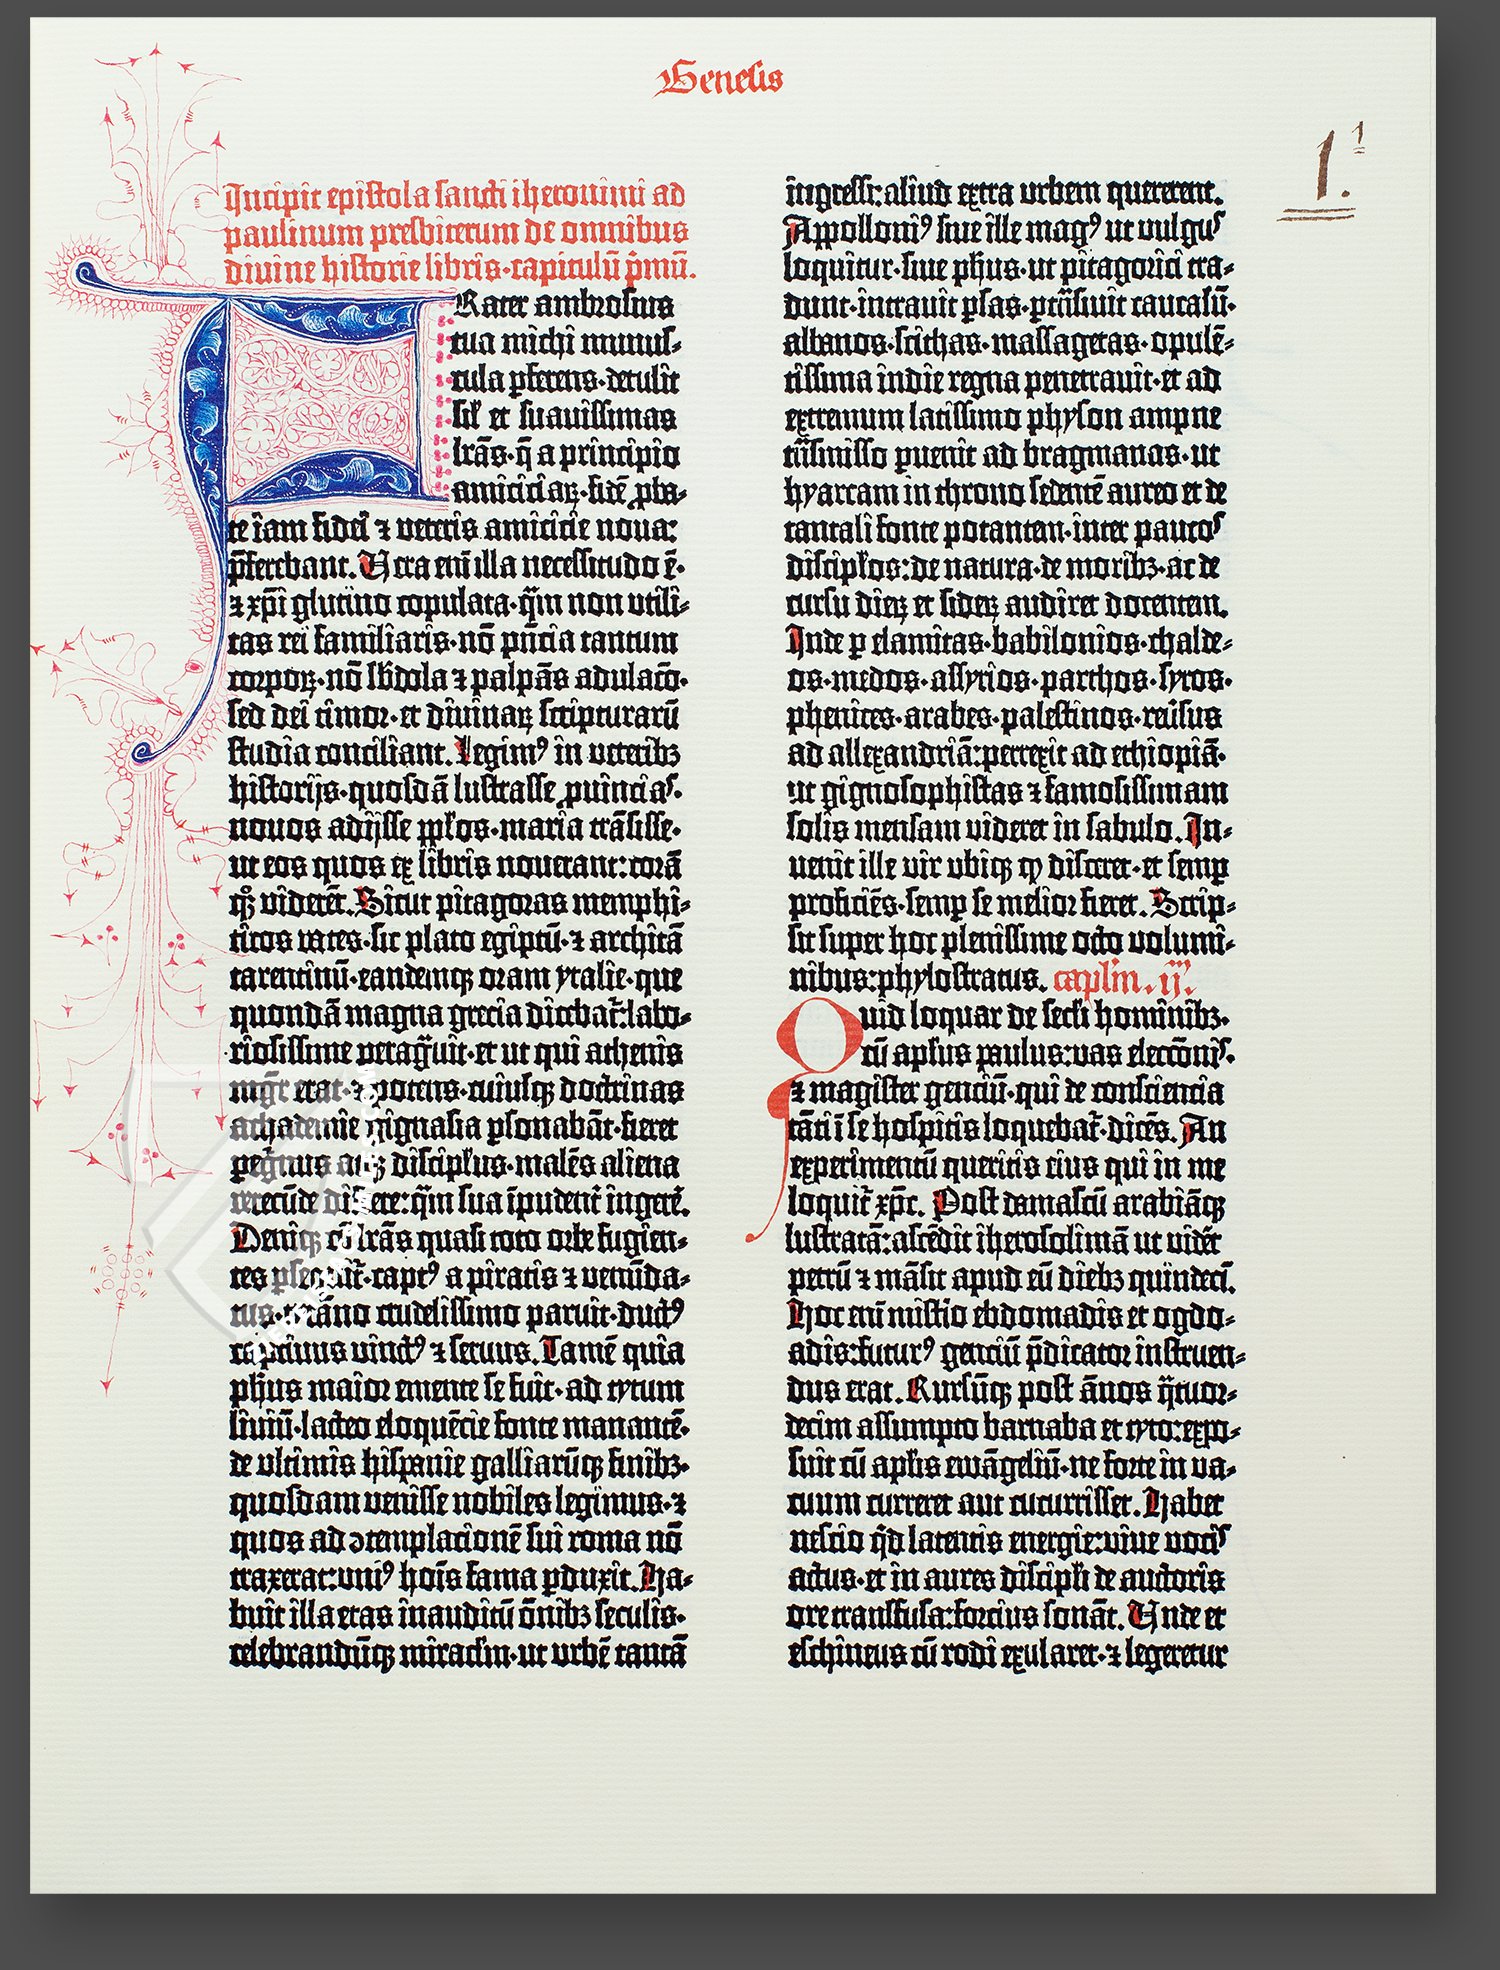 Genesis
1.
1
Incipit epistola sancti iheronimi ad
paulinum presbiterum de omnibus
divine historie libris·capitulū p̄mū.
FRater ambrosius
tua michi munus-
cula p̱ferens·detulit
sil̄ et suavissimas
lr̄as·q̄ a principio
amiciciaꝝ·fidē ꝓba-
te iam fidei ⁊ veteris amicicie nova:
p̄ferebant. Vera eni̅ illa necessitudo ē·
⁊ xp̄i glutino copulata·q̄m non utili-
tas rei familiaris·nō pn̄cia tantum
corpoꝝ·nō sb̄dola ⁊ palpās adulac̄o·
sed dei timor·et divinaꝝ scripturarū
studia conciliant. Legimꝰ in veteribꝫ
historijs·quosdā lustrasse ꝓvincias·
novos adijsse ppl̄os·maria trāsisse·
ut eos quos ex libris noverant: corā
qꝫ viderēt. Sicut pitagoras memphi-
ticos vates·sic plato egiptū·⁊ architā
tarentinū·eandemqꝫ oram ytalie·que
quondā magna grecia dicebat̄: labo-
riosissime peragͣvit·et ut qui athenis
mgr̄ erat·⁊ potens·cuiusqꝫ doctrinas
achademie gignasia ꝑsonabāt·fieret
peg̃rinus atqꝫ discipl̄us·malēs aliena
verecūde discere: q̄m sua īpudent̄ ingerē.
Deniqꝫ cū lr̄as quasi toto orbe fugien-
tes ꝑseq̄ret̄·captꝰ a piratis ⁊ venūda-
tus·tiranno crudelissimo paruit·ductꝰ
captivus vinctꝰ ⁊ servus. Tamē quia
ph̄us maior emente se fuit·ad tytum
liviū·lacteo eloquēcie fonte manantē·
de ultimis hispanie galliarūqꝫ finibꝫ·
quosdam venisse nobiles legimus·⁊
quos ad ꝯtemplacionē sui roma nō
traxerat: uniꝰ hoīs fama ꝑduxit. Ha-
buit illa etas inauditū ōnibꝫ seculis·
celebrandūqꝫ miraclm̄·ut urbē tantā
ingressi: aliud extra urbem quererent.
Apolloniꝰ sive ille magꝰ ut vulgus
loquitur·sive ph̄us·ut pitagorici tra-
dunt·intravit ꝑsas·ptrāsivit caucasū·
albanos·scithas·massagetas·opulē-
tissima indie regna penetravit·et ad
extremum latissimo physon ampne
trāsmisso ꝑvenit ad bragmanas·ut
hyarcam in throno sedentē aureo et de
tantali fonte potantem·inter paucos
discipl̄os: de natura·de moribꝫ·ac de
cursu dieꝝ et sideꝝ audiret docentem.
Inde ꝑ elamitas·babilonios·chalde-
os·medos·assyrios·parthos·syros·
phenices·arabes·palestinos·reūsus
ad allexandriā: perrexit ad ethiopiā·
ut gignosophistas ⁊ famosissimam
solis mensam videret in sabulo. In-
venit ille vir ubiqꝫ qꝫ disceret·et semꝑ
proficiēs·semꝑ se melior fieret. Scrip-
sit super hoc plenissime octo volumi-
nibus: phylostratus. capl̄m. ij.
Quid loquar de secl̄i hominibꝫ·
cū apl̄us paulus: vas eleccōnis·
⁊ magister genciū·qui de consciencia
tāti ī se hospitis loquebat̄·dicēs. An
experimentū queritis eius qui in me
loquit̄ xp̄c. Post damascū arabiāqꝫ
lustratā: ascēdit iherosolimā ut vidēt
petrū ⁊ māsit apud eū diebꝫ quindeci̅.
Hoc eni̅ mistīo ebdomadis et ogdo-
adis: futurꝰ genciū p̄dicator instruen-
dus erat. Rursūqꝫ post ānos q̄tuor-
decim assumpto barnaba et tyto: expo-
suit cū apl̄is ewāgeliū·ne forte in va-
cuum curreret aut cucurrisset. Habet
nescio q̄d latentis energie: vive vocis
actus·et in aures discipl̄i de auctoris
ore transfusa: forcius sonāt. Unde et
eschineus cū rodi exularet·⁊ legeretur